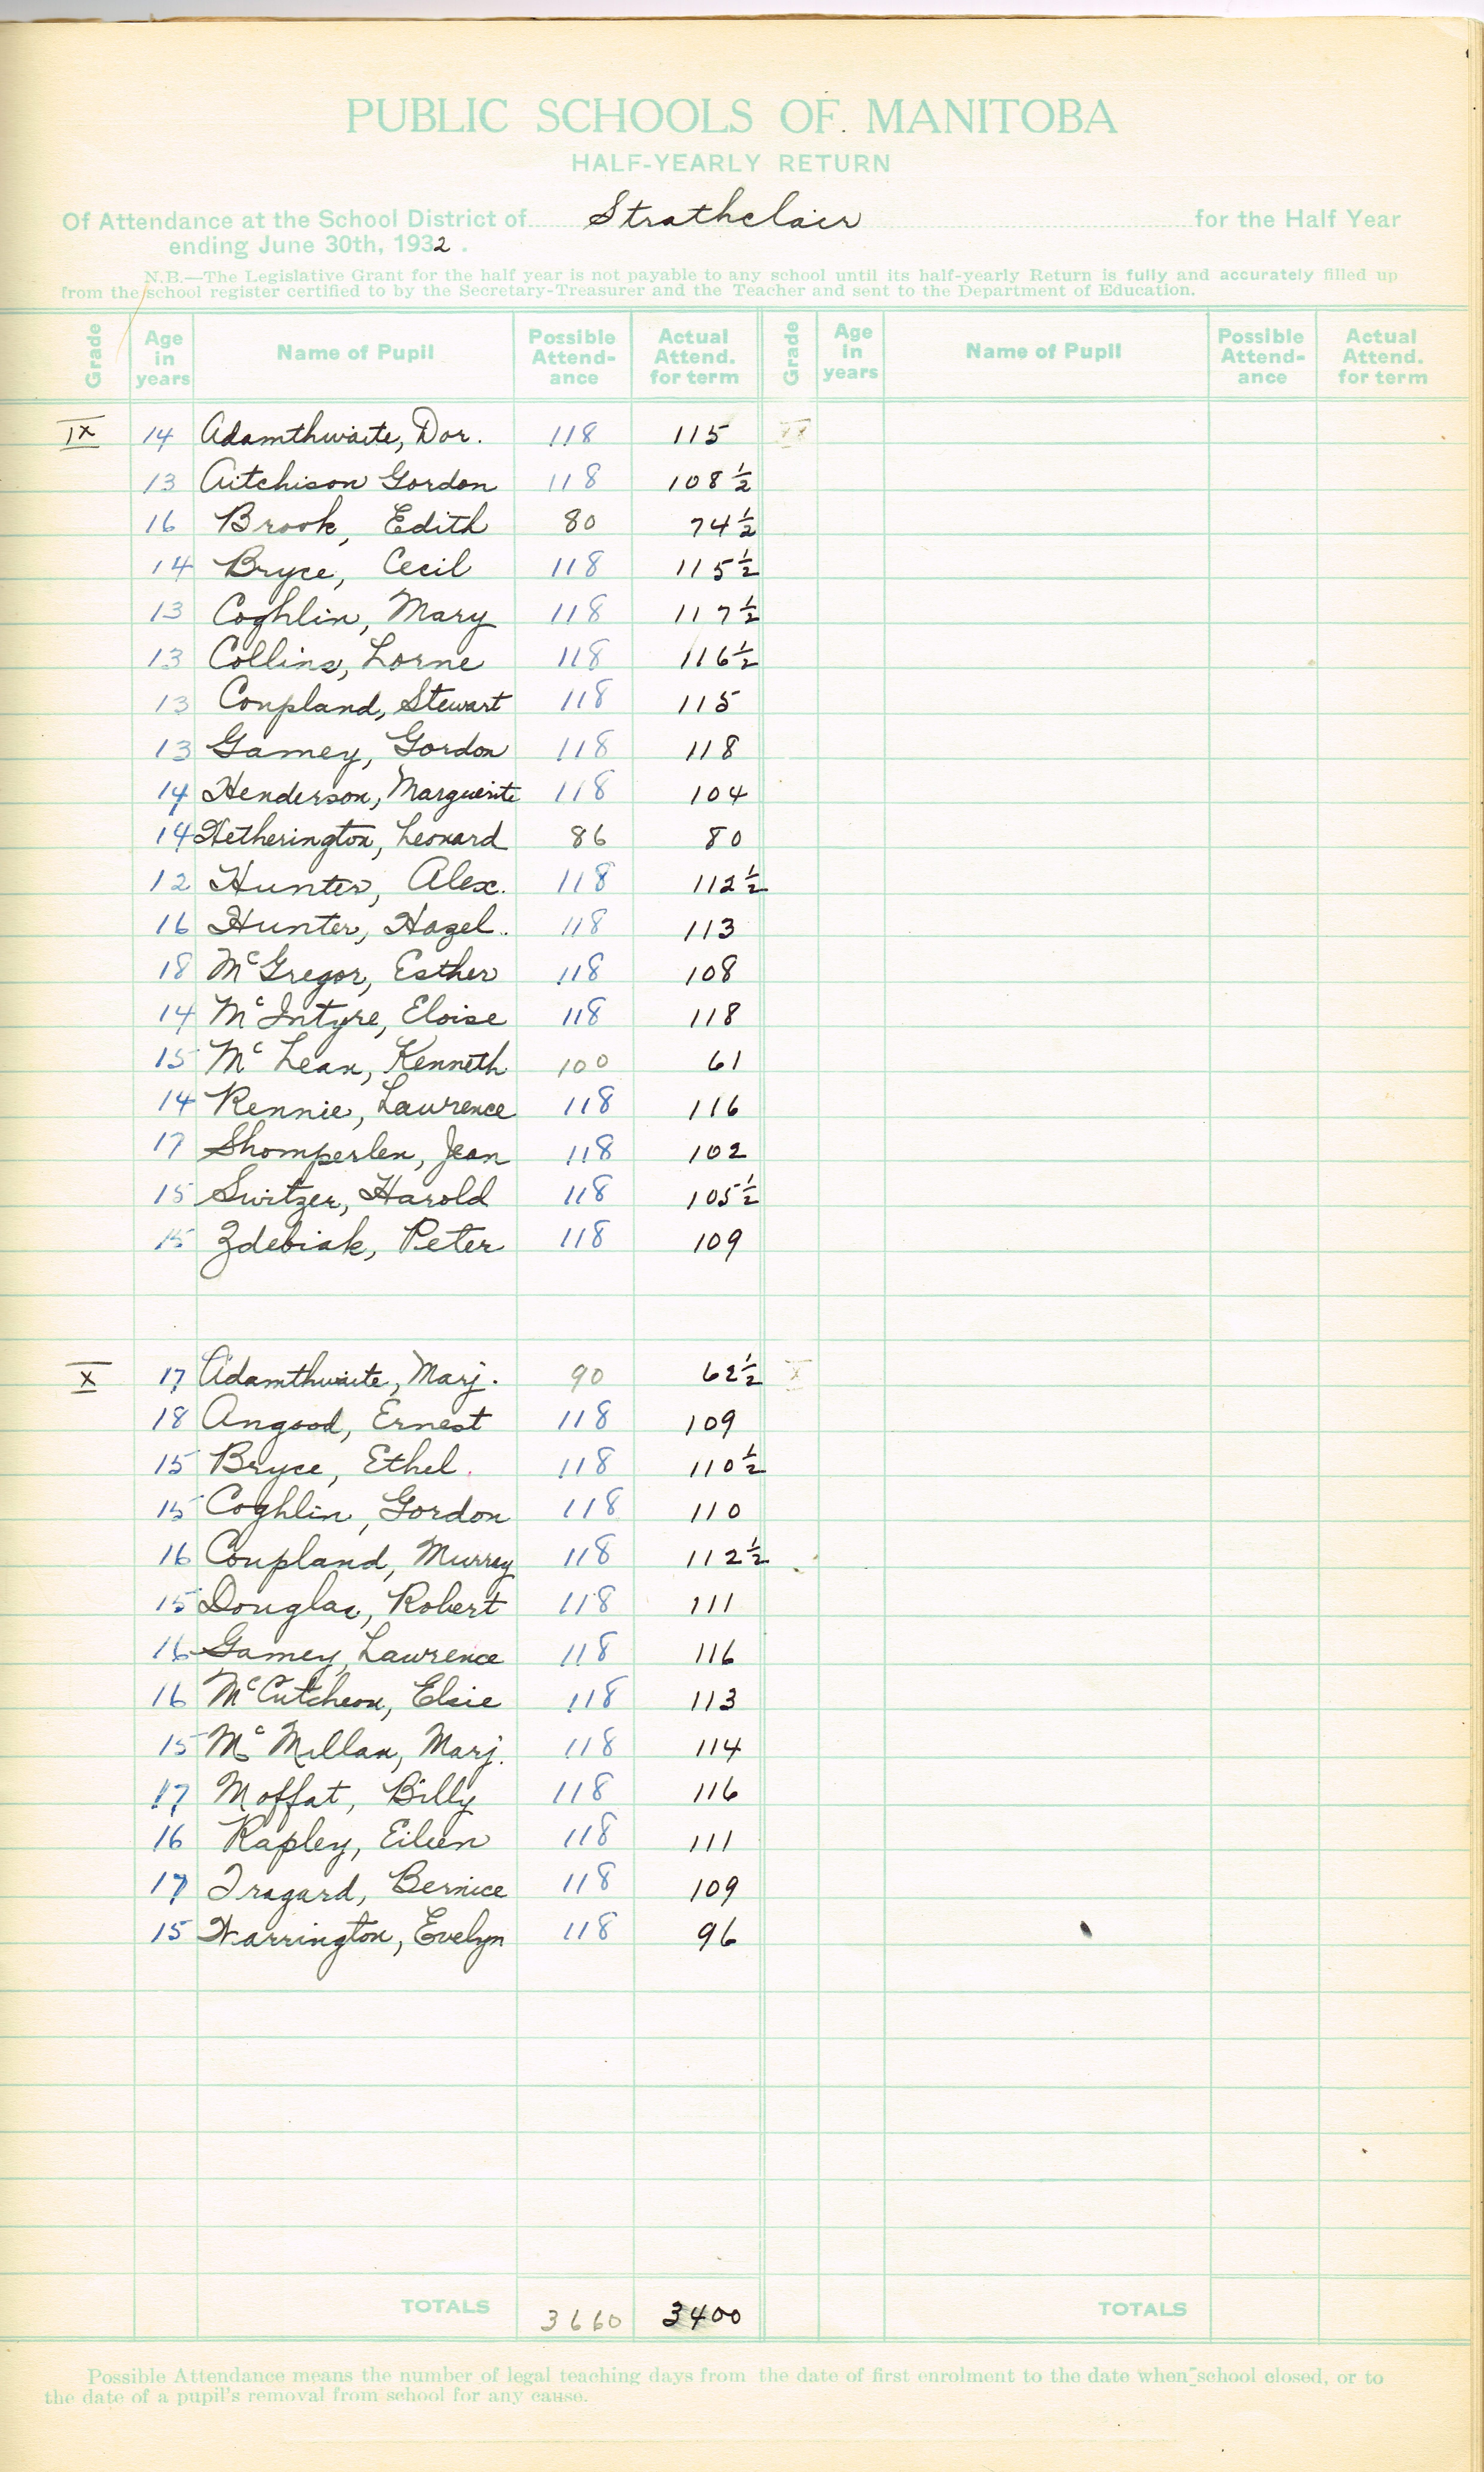 PUBLIC SCHOOLS OF MANITOBA
HALF-YEARLY RETURN
Of Attendance at the School District of Strathclair for the Half Year
ending June 30th, 1932.
N.B.—The Legislative Grant for the half year is not payable to any school until its half-yearly Return is fully and accurately filled up
from the school register certified to by the Secretary-Treasurer and the Teacher and sent to the Department of Education.
Grade Age in years Name of Pupil Possible Attend-ance Actual Attend. for term Grade Age in years Name of Pupil Possible Attend-ance Actual Attend. for term
IX 14 Adamthwaite, Dor. 118 115
13 Aitchison Gordon 118 108 1/2
16 Brook, Edith 80 74 1/2
14 Bryce, Cecil 118 115 1/2
13 Coghlin, Mary 118 117 1/2
13 Collins, Lorne 118 116 1/2
13 Coupland, Stewart 118 115
13 Gamey, Gordon 118 118
14 Henderson, Marguerite 118 104
14 Hetherington, Leonard 86 80
12 Hunter, Alex. 118 112 1/2
16 Hunter, Hazel. 118 113
18 McGregor, Esther 118 108
14 McIntyre, Eloise 118 118
15 McLean, Kenneth 100 61
14 Rennie, Lawrence 118 116
17 Shomperlen, Jean 118 102
15 Switzer, Harold 118 105 1/2
15 Zdebiak, Peter 118 109
X 17 Adamthwaite, Marj. 90 62 1/2
18 Angood, Ernest 118 109
15 Bryce, Ethel. 118 110 1/2
15 Coghlin, Gordon 118 110
16 Coupland, Murray 118 112 1/2
15 Douglas, Robert 118 111
16 Gamey, Lawrence 118 116
16 McCutcheon, Elsie 118 113
15 McMillan, Marj. 118 114
17 Moffat, Billy 118 116
16 Rapley, Eileen 118 111
17 Tragard, Bernice 118 109
15 Warrington, Evelyn 118 96
TOTALS 3660 3400 TOTALS
Possible Attendance means the number of legal teaching days from the date of first enrolment to the date when school closed, or to
the date of a pupil's removal from school for any cause.